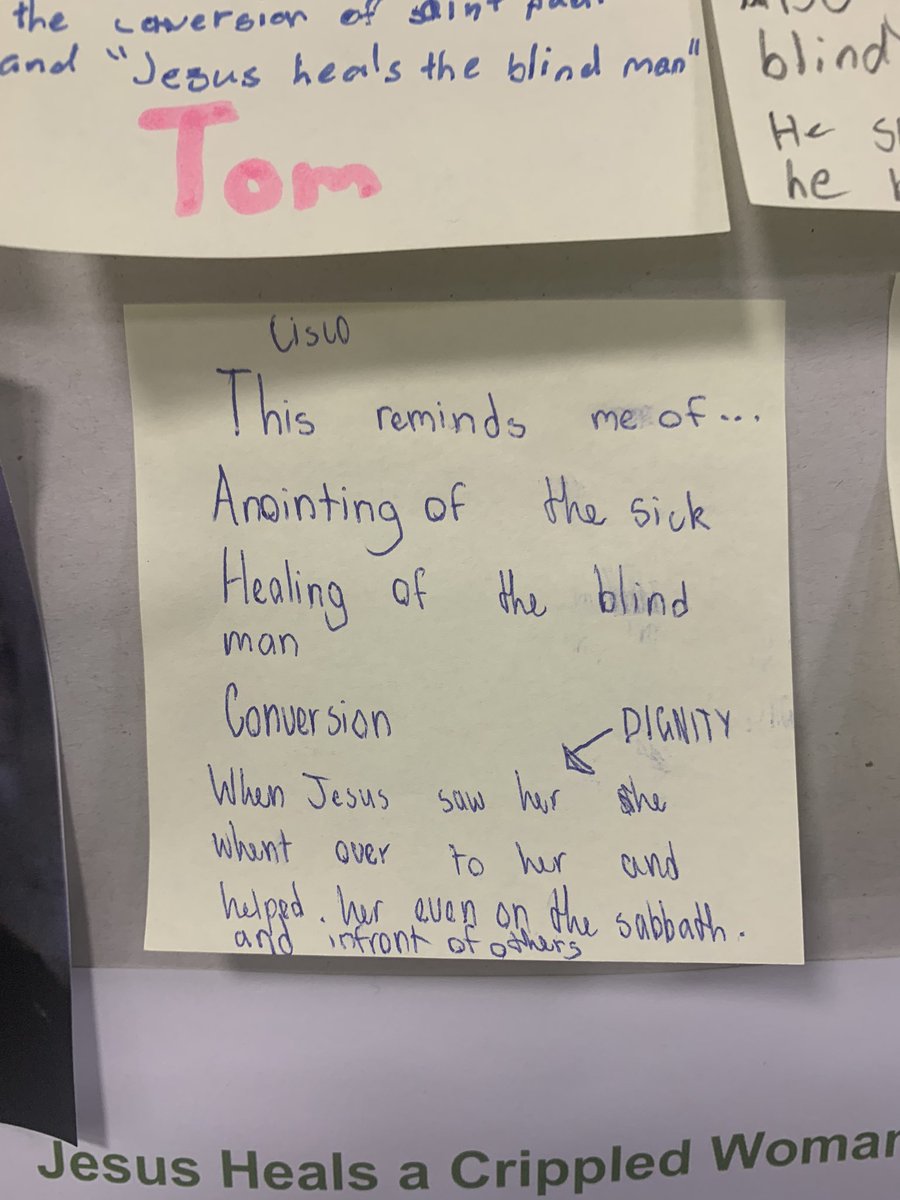 the conversion of saint Paul
and "Jesus heals the blind man"
Tom
blind
He
he
Cisco
This reminds me of...
Anointing of the sick
Healing of the blind
man
Conversion
DIGNITY
When Jesus saw her she
whent over to her and
helped. her even on the sabbath.
and infront of others
Jesus Heals a Crippled Woman